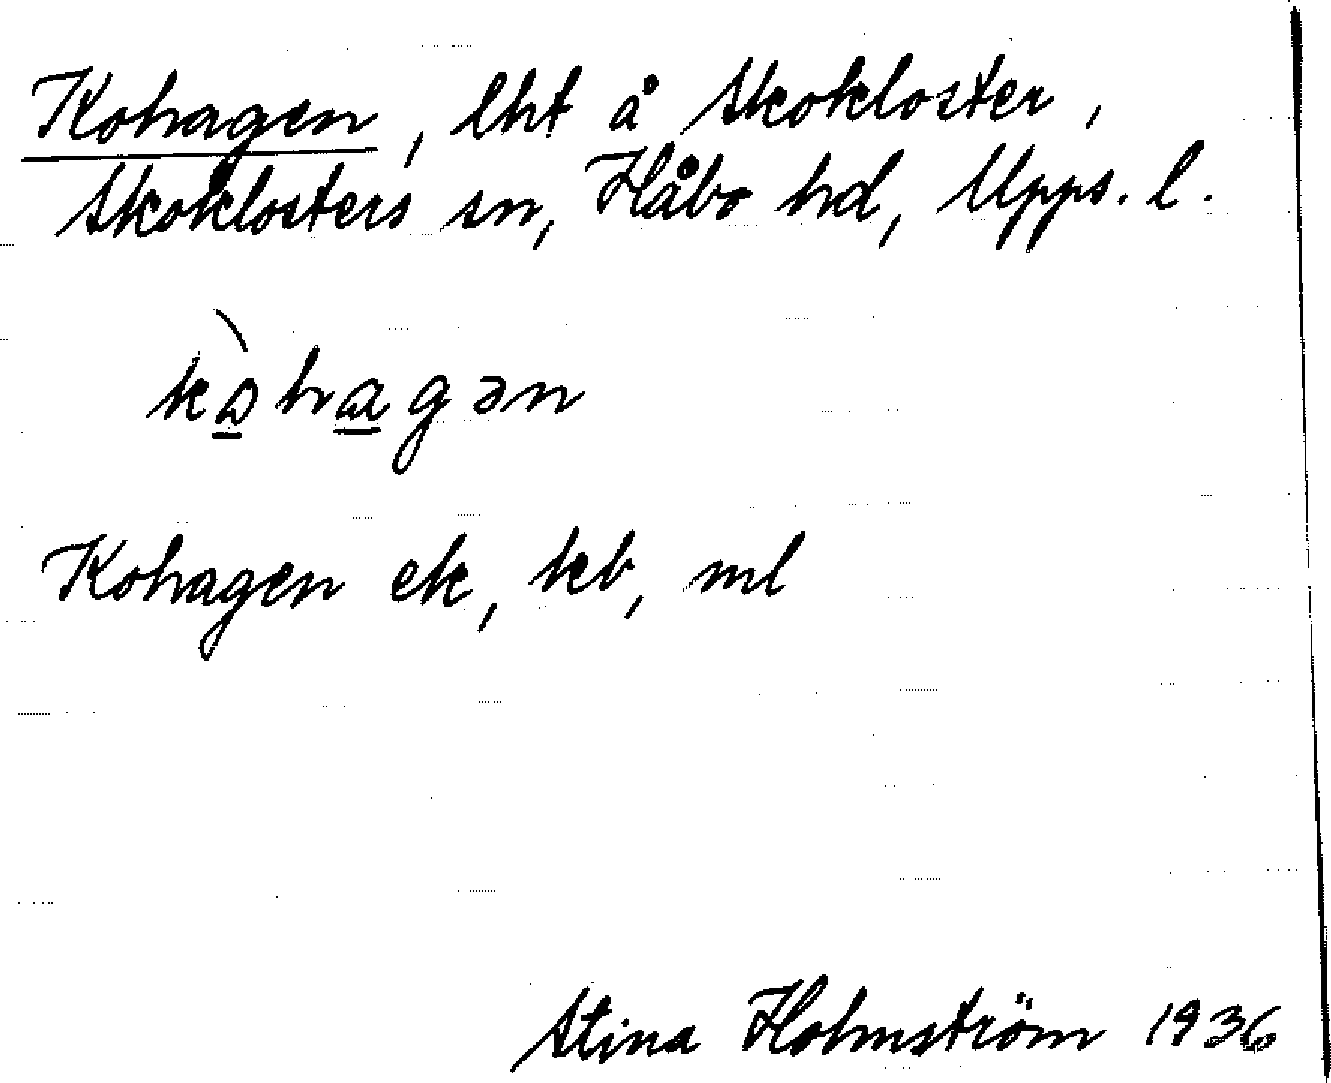 Kohagen, lht å Skokloster,
Skoklosters sn, Håbo hd, Upps. l.
kò̠ha̠gən
Kohagen ek, kb, ml
Stina Holmström 1936